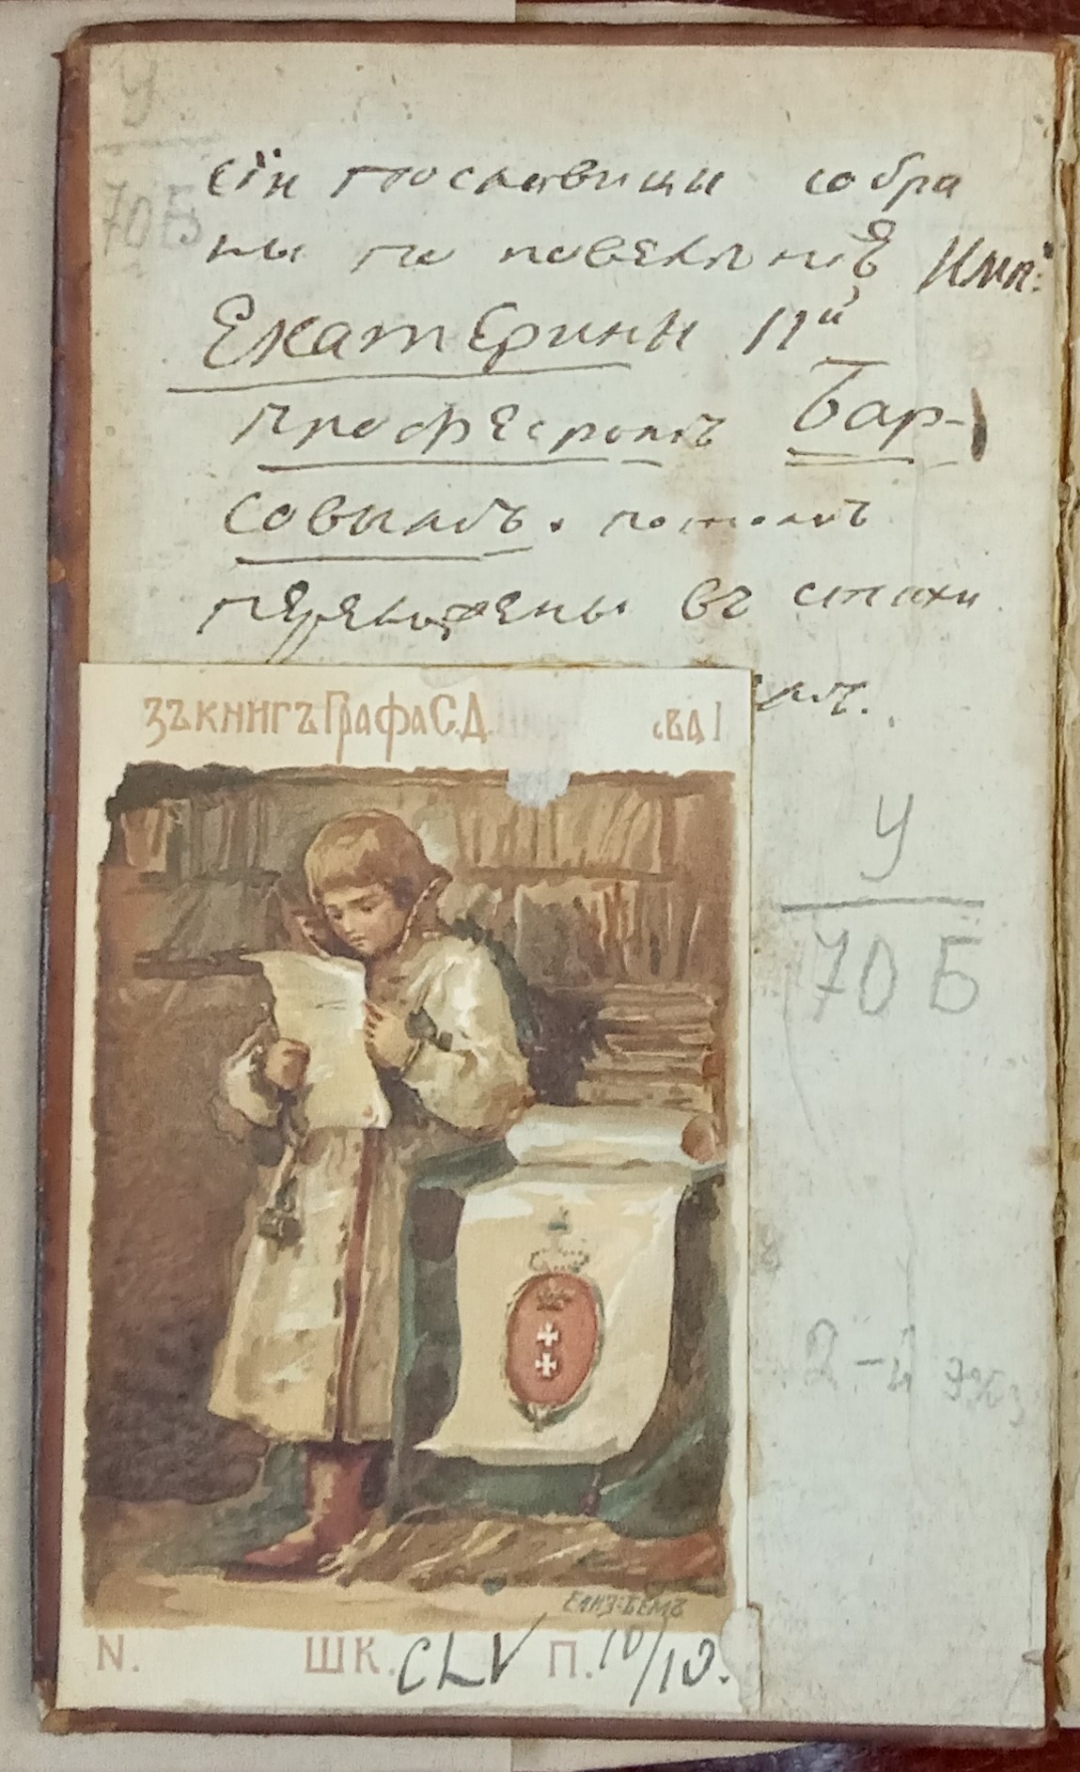 У
70 Б
сiи пословицы собра
ны по повелѣнiю Имп:
Екатерины IIй
Професромъ Бар-
совымъ. потомъ
переложены въ стихи
У
70 Б
зъ книгъ Графа С.Д.
2-й экз
Елиз: Бёмъ
N. ШК. CLV П. 10/10.